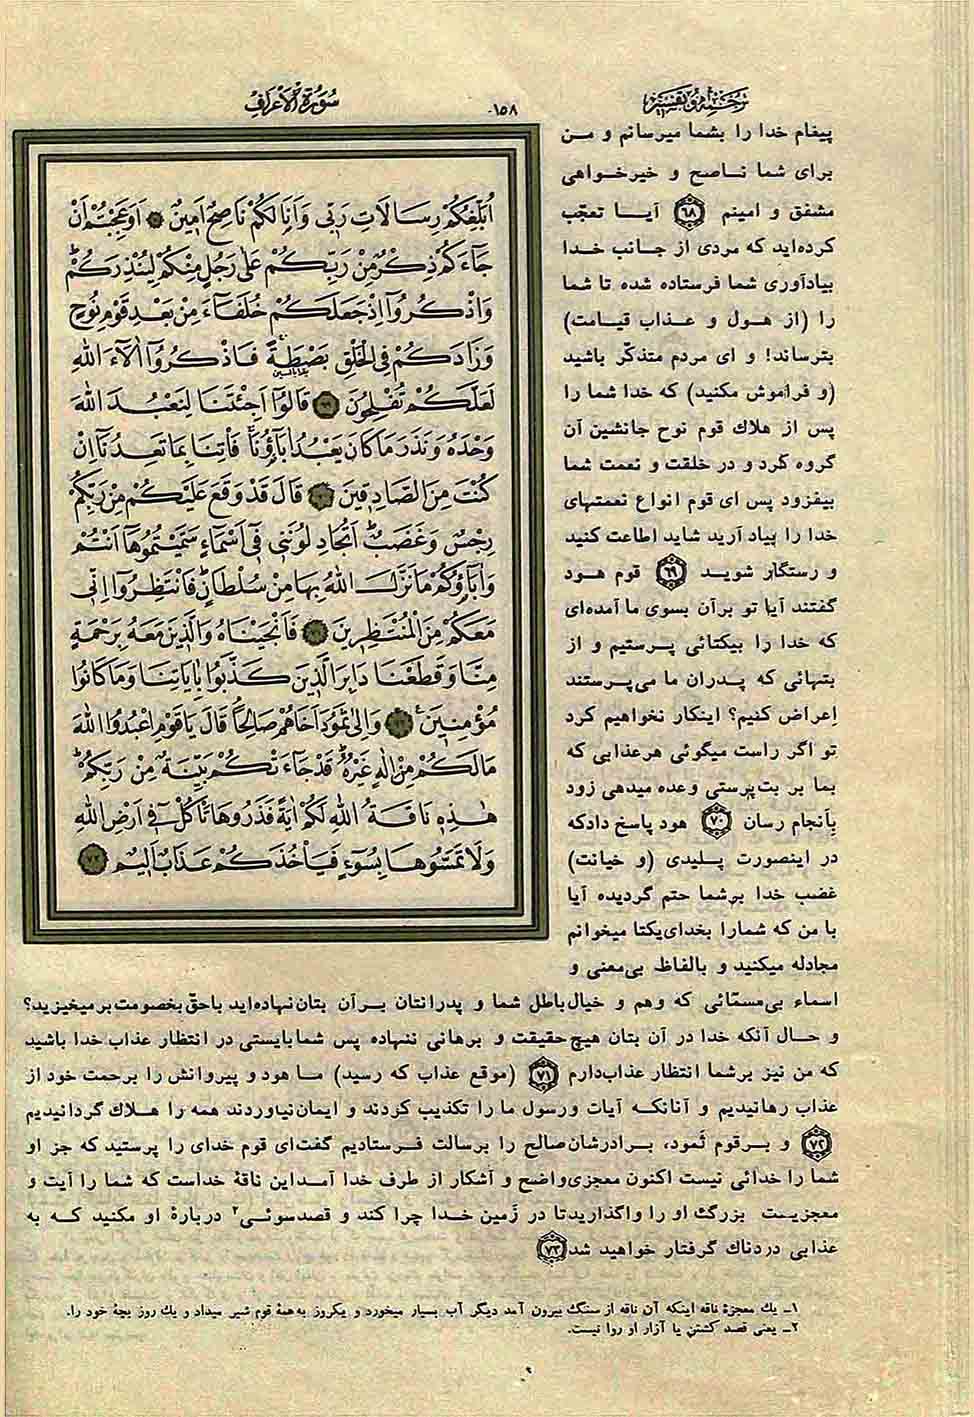 ترجمه و تفسیر
۱۵۸
سُورَةُ الْأَعْرَافِ
اُبَلِّغُكُمْ رِسَالَاتِ رَبّٖى وَاَنَا لَكُمْ نَاصِحٌ اَمٖينٌ ۞ اَوَعَجِبْتُمْ اَنْ
جَآءَكُمْ ذِكْرٌ مِنْ رَبِّكُمْ عَلٰى رَجُلٍ مِنْكُمْ لِيُنْذِرَكُمْ
وَاذْكُرُوٓا اِذْ جَعَلَكُمْ خُلَفَآءَ مِنْ بَعْدِ قَوْمِ نُوحٍ
وَزَادَكُمْ فِى الْخَلْقِ بَصْطَةً فَاذْكُرُوٓا اٰلَآءَ اللّٰهِ
لَعَلَّكُمْ تُفْلِحُونَ ۶۹ قَالُوٓا اَجِئْتَنَا لِنَعْبُدَ اللّٰهَ
وَحْدَهُ وَنَذَرَ مَا كَانَ يَعْبُدُ اٰبَآؤُنَا فَاْتِنَا بِمَا تَعِدُنَآ اِنْ
كُنْتَ مِنَ الصَّادِقٖينَ ۷۰ قَالَ قَدْ وَقَعَ عَلَيْكُمْ مِنْ رَبِّكُمْ
رِجْسٌ وَغَضَبٌ اَتُجَادِلُونَنٖى فٖٓى اَسْمَآءٍ سَمَّيْتُمُوهَآ اَنْتُمْ
وَاٰبَآؤُكُمْ مَا نَزَّلَ اللّٰهُ بِهَا مِنْ سُلْطَانٍ فَانْتَظِرُوٓا اِنّٖى
مَعَكُمْ مِنَ الْمُنْتَظِرٖينَ ۷۱ فَاَنْجَيْنَاهُ وَالَّذٖينَ مَعَهُ بِرَحْمَةٍ
مِنَّا وَقَطَعْنَا دَابِرَ الَّذٖينَ كَذَّبُوا بِاٰيَاتِنَا وَمَا كَانُوا
مُؤْمِنٖينَ ۷۲ وَاِلٰى ثَمُودَ اَخَاهُمْ صَالِحًا قَالَ يَا قَوْمِ اعْبُدُوا اللّٰهَ
مَا لَكُمْ مِنْ اِلٰهٍ غَيْرُهُ قَدْ جَآءَتْكُمْ بَيِّنَةٌ مِنْ رَبِّكُمْ
هٰذِهٖ نَاقَةُ اللّٰهِ لَكُمْ اٰيَةً فَذَرُوهَا تَاْكُلْ فٖٓى اَرْضِ اللّٰهِ
وَلَا تَمَسُّوهَا بِسُوٓءٍ فَيَاْخُذَكُمْ عَذَابٌ اَلٖيمٌ ۷۳
پیغام خدا را بشما میرسانم و من
برای شما ناصح و خیرخواهی
مشفق و امینم ۶۸ آیا تعجّب
کرده‌اید که مردی از جانب خدا
بیادآوری شما فرستاده شده تا شما
را (از هول و عذاب قیامت)
بترساند! و ای مردم متذکّر باشید
(و فراموش مکنید) که خدا شما را
پس از هلاك قوم نوح جانشین آن
گروه کرد و در خلقت و نعمت شما
بیفزود پس ای قوم انواع نعمتهای
خدا را بیاد آرید شاید اطاعت کنید
و رستگار شوید ۶۹ قوم هود
گفتند آیا تو برآن بسوی ما آمده‌ای
که خدا را بیکتائی پرستیم و از
بتهائی که پدران ما می‌پرستند
اِعراض کنیم؟ اینکار نخواهیم کرد
تو اگر راست میگوئی هرعذابی که
بما بر بت‌پرستی وعده میدهی زود
بانجام رسان ۷۰ هود پاسخ دادکه
در اینصورت پلیدی (و خیانت)
غضب خدا برشما حتم گردیده آیا
با من که شمارا بخدای‌یکتا میخوانم
مجادله میکنید و بالفاظ بی‌معنی و
اسماء بی‌مسمّائی که وهم و خیال‌باطل شما و پدرانتان برآن بتان‌نهاده‌اید باحقّ بخصومت برمیخیزید؟
و حال آنکه خدا در آن بتان هیچ حقیقت و برهانی ننهاده پس شمابایستی در انتظار عذاب خدا باشید
که من نیز برشما انتظار عذاب‌دارم ۷۱ (موقع عذاب که رسید) ما هود و پیروانش را برحمت خود از
عذاب رهانیدیم و آنانکه آیات ورسول ما را تکذیب کردند و ایمان‌نیاوردند همه را هلاك گردانیدیم
۷۲ و برقوم ثَمود، برادرشان‌صالح را برسالت فرستادیم گفت‌ای قوم خدای را پرستید که جز او
شما را خدائی نیست اکنون معجزی‌واضح و آشکار از طرف خدا آمداین ناقهٔ خداست که شما را آیت و
معجزیست بزرگ او را واگذاریدتا در زمین خدا چرا کند و قصدسوئی۲ دربارهٔ او مکنید که به
عذابی دردناك گرفتار خواهید شد ۷۳
۱ـ یك معجزهٔ ناقه اینکه آن ناقه از سنگ بیرون آمد دیگر آب بسیار میخورد و یکروز به‌همهٔ قوم شیر میداد و یك روز بچهٔ خود را.
۲ـ یعنی قصد کشتن یا آزار او روا نیست.